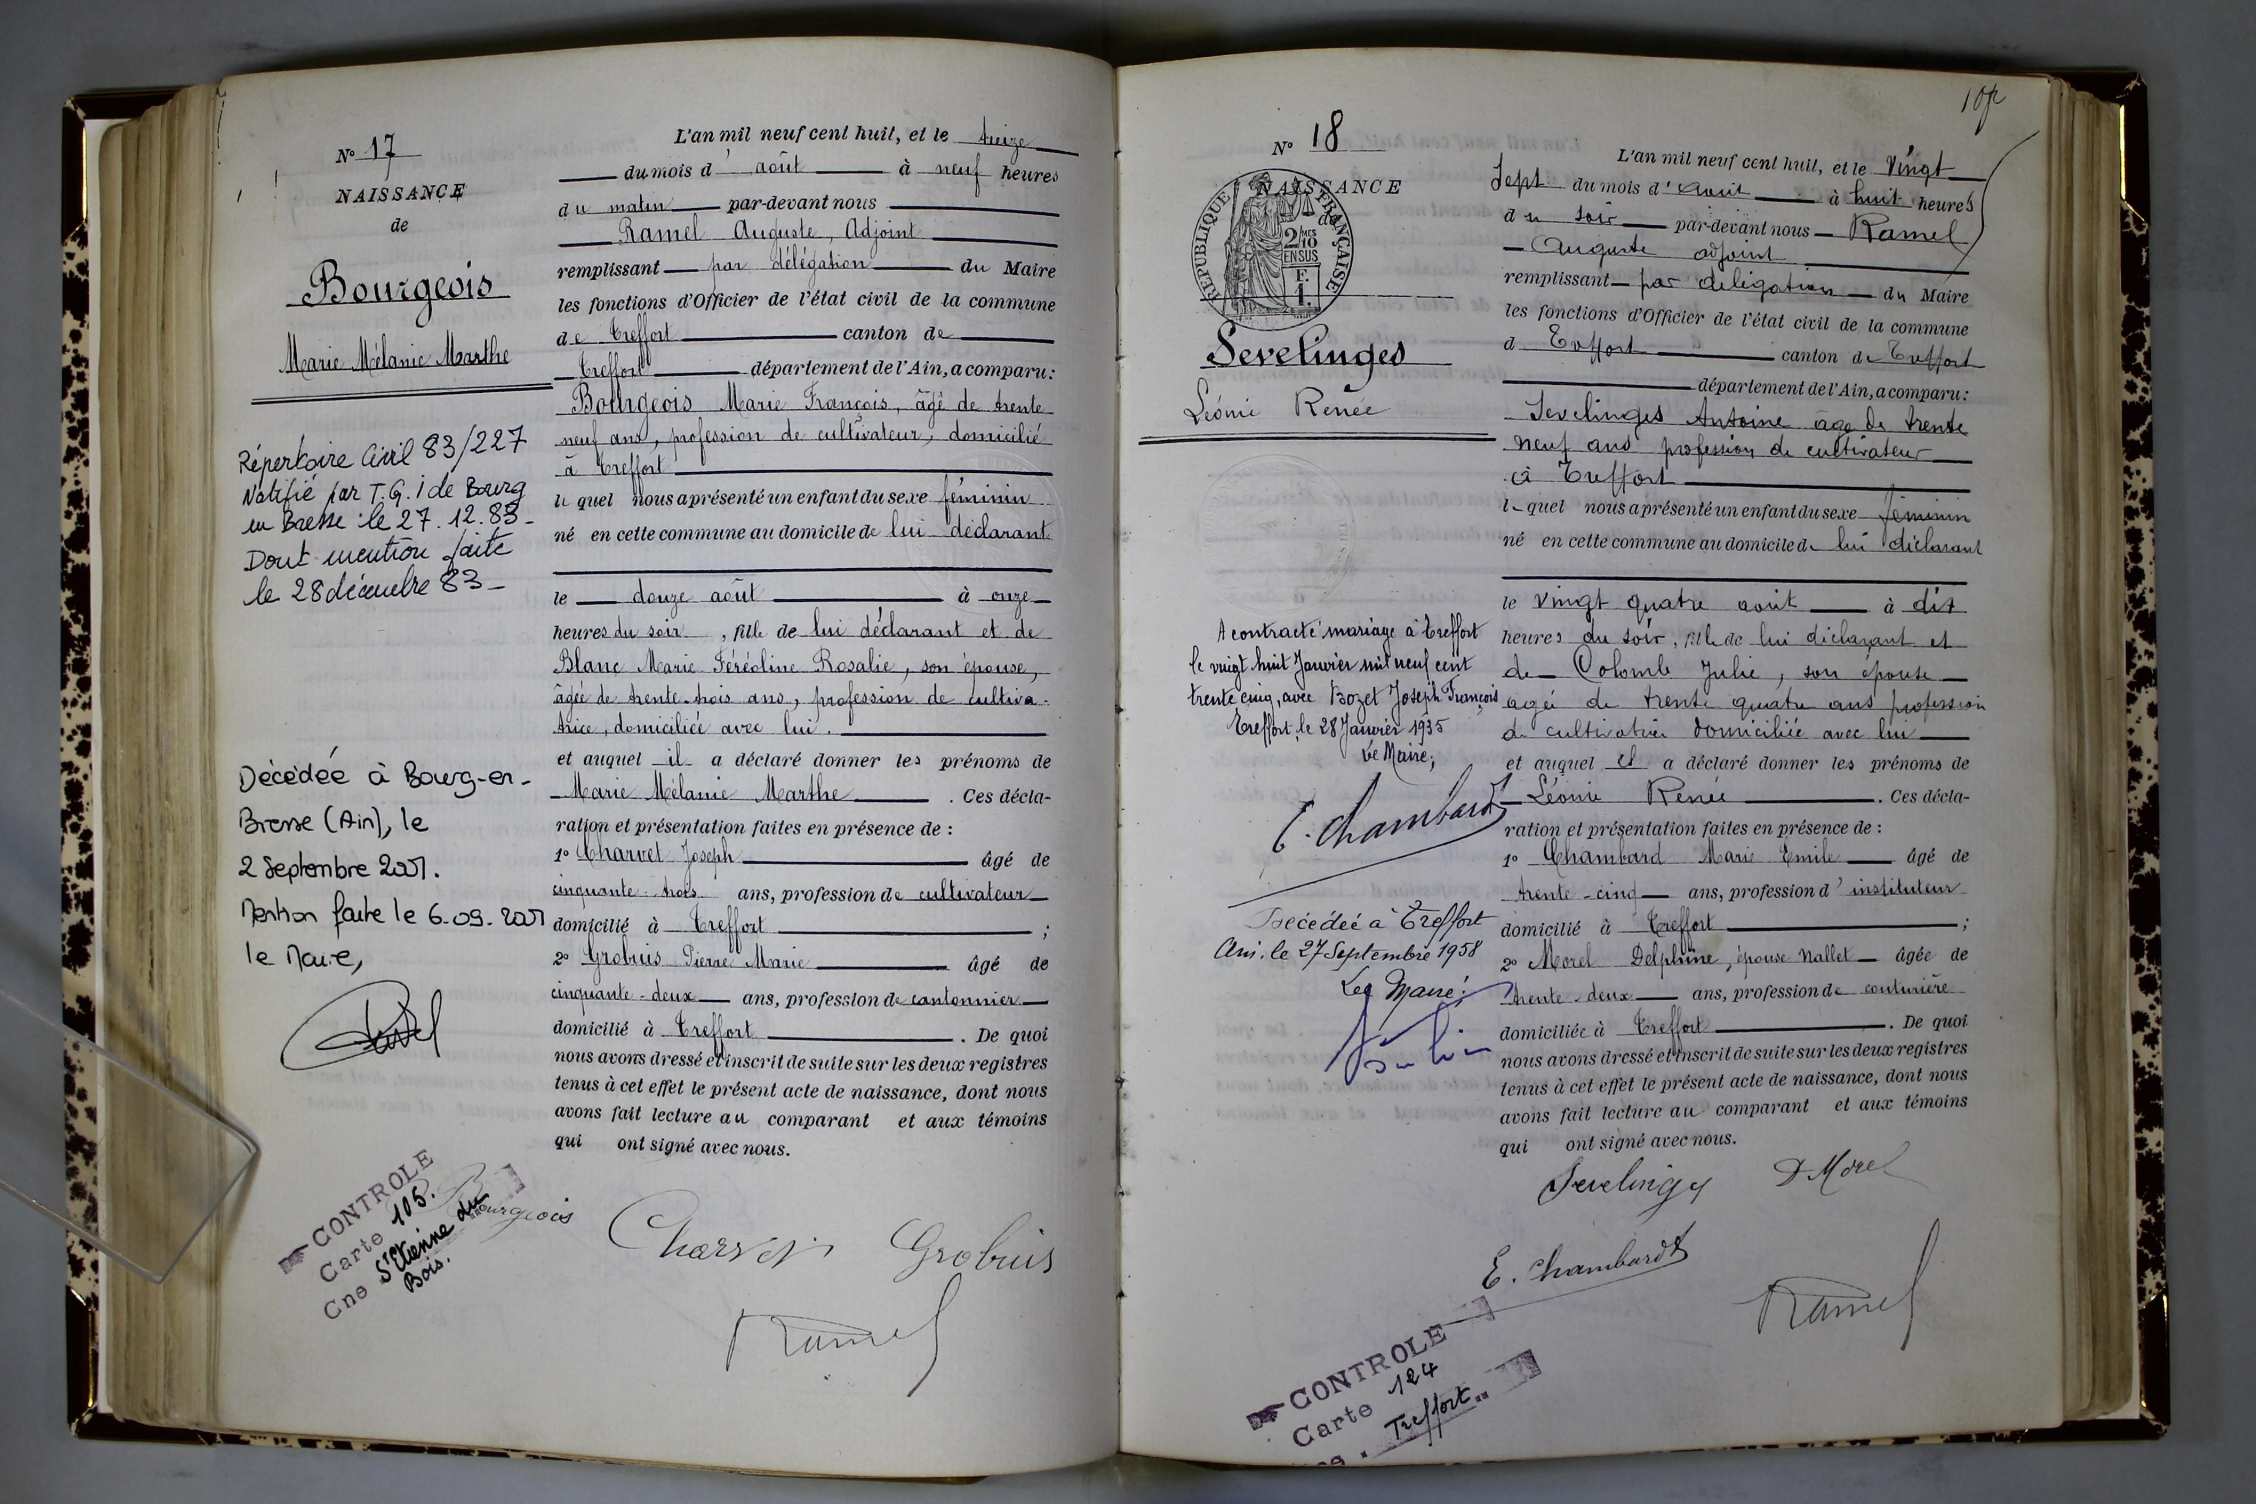 N° 17
NAISSANCE
de
Bourgeois
Marie Mélanie Marthe
Répertoire Civil 83/227
Notifié par T.G.I de Bourg
en Bresse le 27.12.83-
Dont mention faite
le 28 décembre 83-
Décédée à Bourg-en-
Bresse (Ain), le
2 Septembre 2001.
Mention faite le 6.09.2001
le Maire,
L'an mil neuf cent huit, et le treize
du mois d'août à neuf heures
du matin par-devant nous
Ramel Auguste, Adjoint
remplissant par délégation du Maire
les fonctions d'Officier de l'état civil de la commune
de Treffort canton de
Treffort département de l'Ain, a comparu:
Bourgeois Marie François, âgé de trente
neuf ans, profession de cultivateur, domicilié
à Treffort
le quel nous a présenté un enfant du sexe féminin
né en cette commune au domicile de lui déclarant
le douze août à onze
heures du soir, fille de lui déclarant et de
Blanc Marie Féréoline Rosalie, son épouse,
âgée de trente-trois ans, profession de cultiva-
trice, domiciliée avec lui.
et auquel il a déclaré donner les prénoms de
Marie Mélanie Marthe. Ces décla-
ration et présentation faites en présence de :
1° Charvet Joseph âgé de
cinquante-trois ans, profession de cultivateur
domicilié à Treffort ;
2° Grobuis Pierre Marie âgé de
cinquante-deux ans, profession de cantonnier
domicilié à Treffort. De quoi
nous avons dressé et inscrit de suite sur les deux registres
tenus à cet effet le présent acte de naissance, dont nous
avons fait lecture au comparant et aux témoins
qui ont signé avec nous.
CONTROLE
Carte 105.
Cne St Etienne du
Bois.
Bourgeois
Charvet Grobuis
Ramel
N° 18
NAISSANCE
de
RÉPUBLIQUE FRANÇAISE
2/10 MES
EN SUS
F.
1.
Sevelinges
Léonie Renée
A contracté mariage à Treffort
le vingt huit Janvier mil neuf cent
trente cinq, avec Bozet Joseph François
Treffort, le 28 Janvier 1935
Le Maire;
E. Chambard
Décédée à Treffort
Ain. le 27 Septembre 1958
Le Maire:
L'an mil neuf cent huit, et le vingt
sept du mois d'août à huit heures
du soir par-devant nous Ramel
Auguste adjoint
remplissant par délégation du Maire
les fonctions d'Officier de l'état civil de la commune
d Treffort canton de Treffort
département de l'Ain, a comparu:
Sevelinges Antoine âgé de trente
neuf ans profession de cultivateur
à Treffort
le quel nous a présenté un enfant du sexe féminin
né en cette commune au domicile de lui déclarant
le vingt quatre août à dix
heures du soir, fille de lui déclarant et
de Colomb Julie, son épouse
agée de trente quatre ans profession
de cultivatrice domiciliée avec lui
et auquel il a déclaré donner les prénoms de
Léonie Renée. Ces décla-
ration et présentation faites en présence de :
1° Chambard Marie Emile âgé de
trente-cinq ans, profession d'instituteur
domicilié à Treffort ;
2° Morel Delphine, épouse Nallet âgée de
trente-deux ans, profession de couturière
domiciliée à Treffort. De quoi
nous avons dressé et inscrit de suite sur les deux registres
tenus à cet effet le présent acte de naissance, dont nous
avons fait lecture au comparant et aux témoins
qui ont signé avec nous.
Sevelinges D. Morel
E. Chambard
Ramel
CONTROLE
Carte 124
Treffort